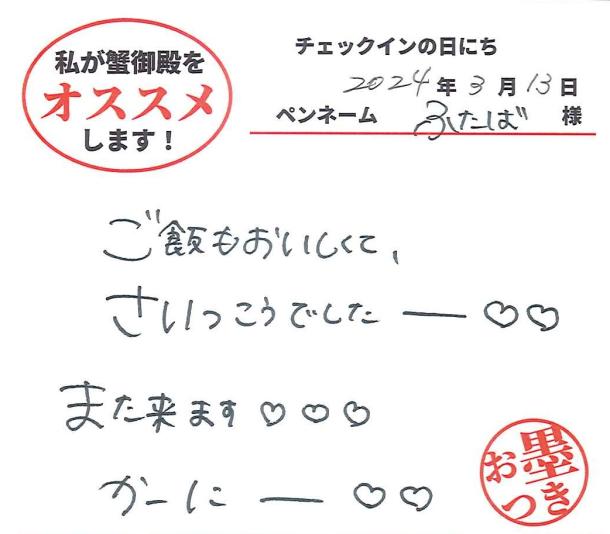 私が蟹御殿を
オススメ
します！
チェックインの日にち
2024年3月13日
ペンネーム ふたば 様
ご飯もおいしくて、
さいっこうでしたー♡♡
また来ます♡♡♡
かーにー♡♡
お墨
つき